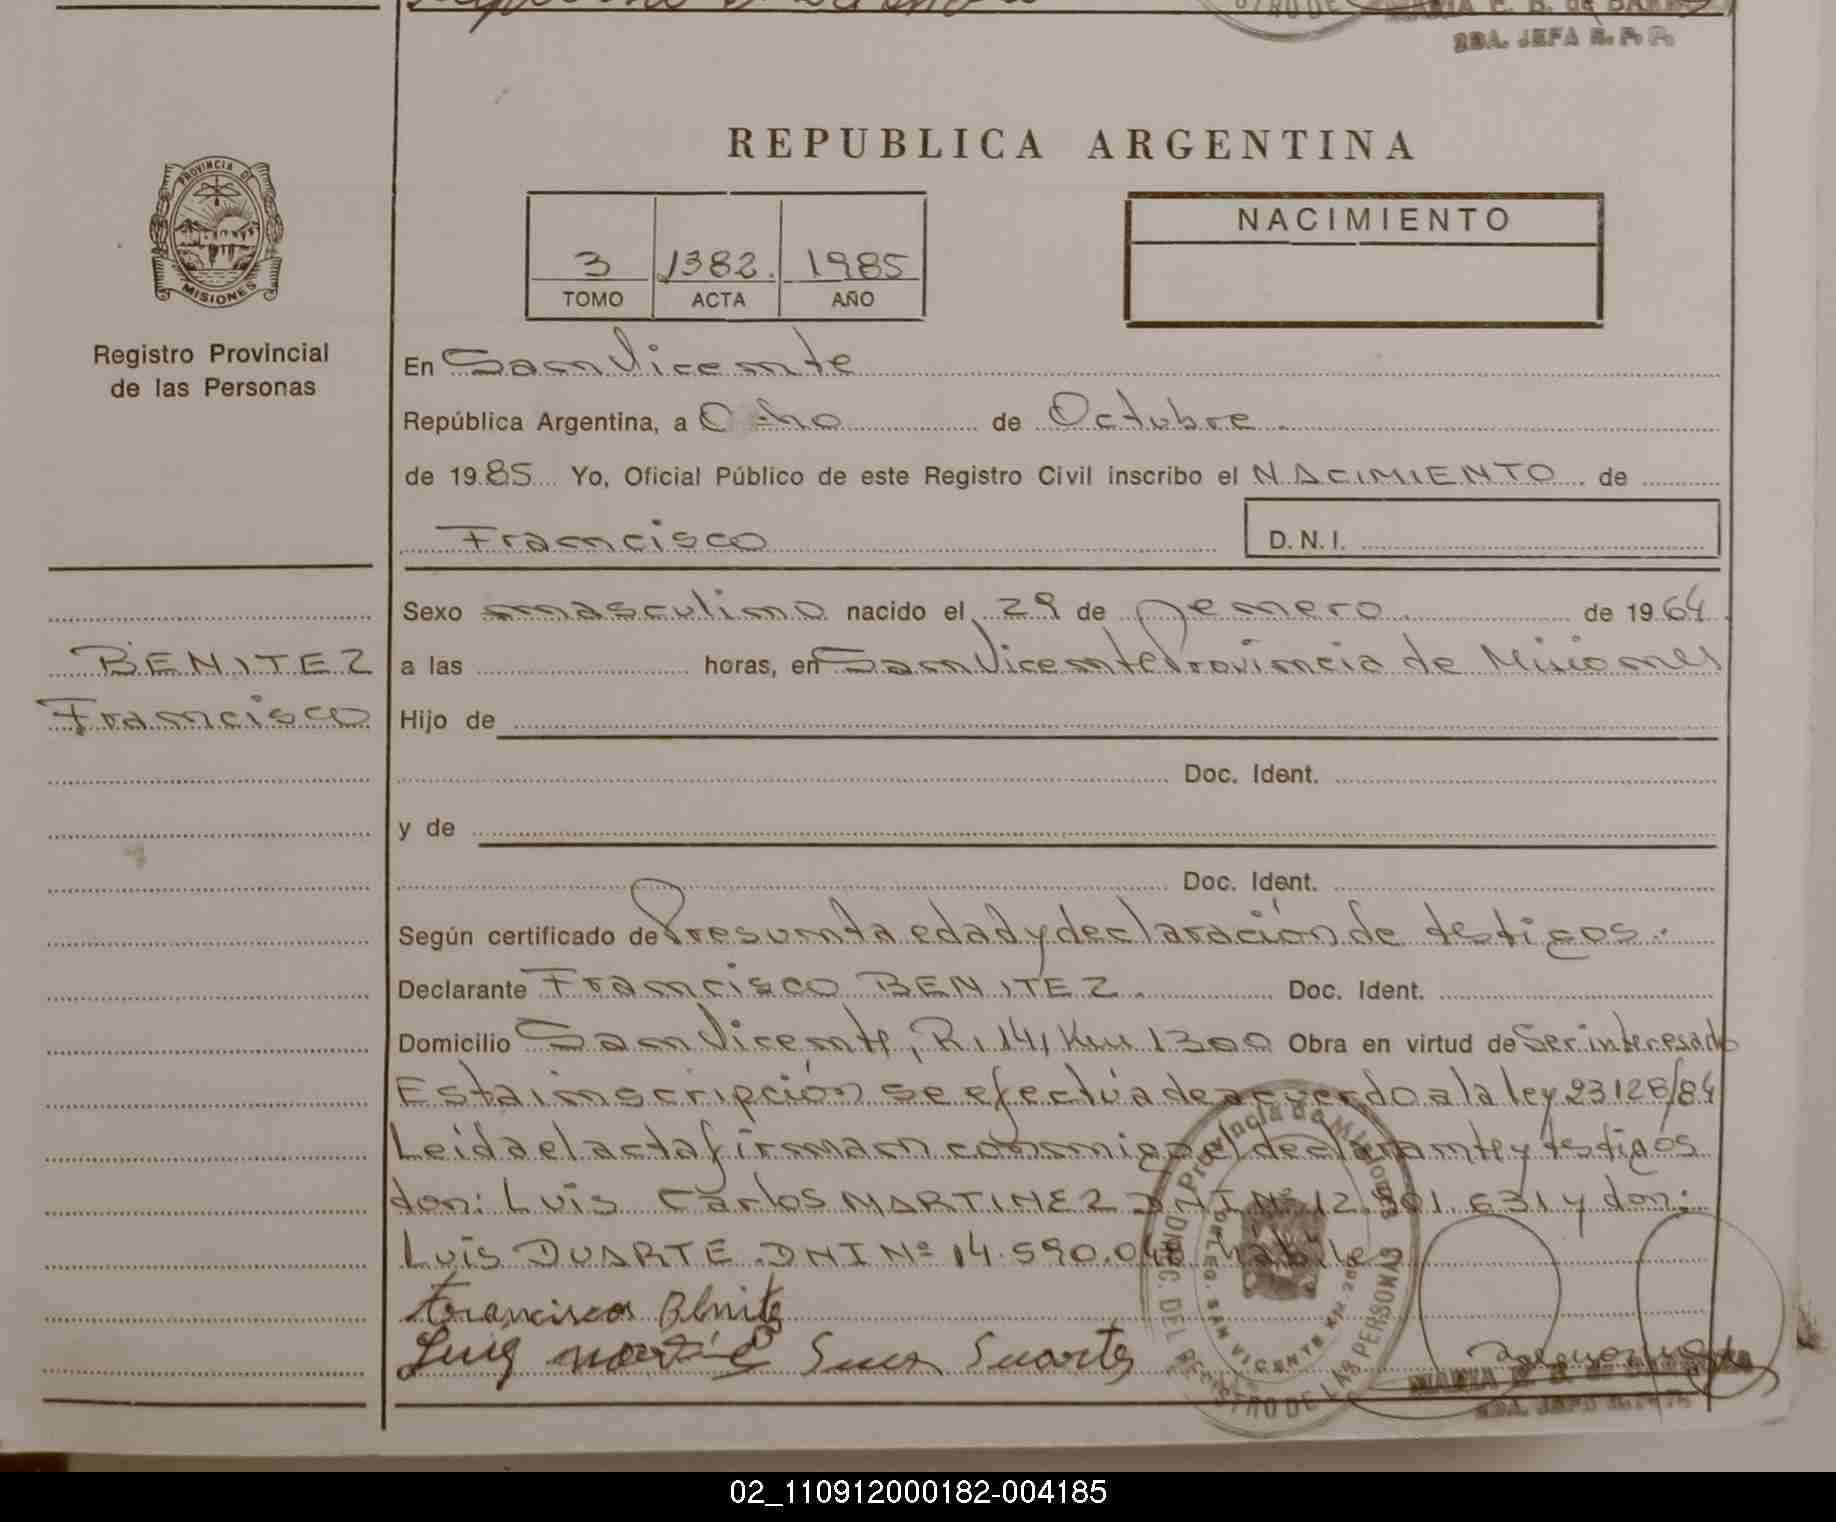 SDA. JEFA R. P. P.
REPUBLICA ARGENTINA
PROVINCIA DE
MISIONES
Registro Provincial
de las Personas
3 1382. 1985
TOMO ACTA AÑO
NACIMIENTO
En San Vicente
República Argentina, a Ocho de Octubre.
de 19.85 Yo, Oficial Público de este Registro Civil inscribo el NACIMIENTO. de
Francisco D.N.I.
Sexo masculino nacido el 29 de enero de 19 64
BENITEZ
Francisco
a las horas, en San Vicente Provincia de Misiones
Hijo de
Doc. Ident.
y de
Doc. Ident.
Según certificado de Presunta edad y declaración de testigos.
Declarante Francisco BENITEZ. Doc. Ident.
Domicilio San Vicente, R, 14, Km 1300 Obra en virtud de Ser interesado
Esta inscripción se efectúa de acuerdo a la ley 23128/84
Leída el acta firman conmigo el declarante y testigos
don: Luis Carlos MARTINEZ DNI Nº 12.901.631 y don:
Luis DUARTE. DNI Nº 14.590.048 habiles
Francisco Benitez
Luis Duarte
Provincia de Misiones
DIREC. DEL REGISTRO DE LAS PERSONAS
DELEG. SAN VICENTE
02_110912000182-004185